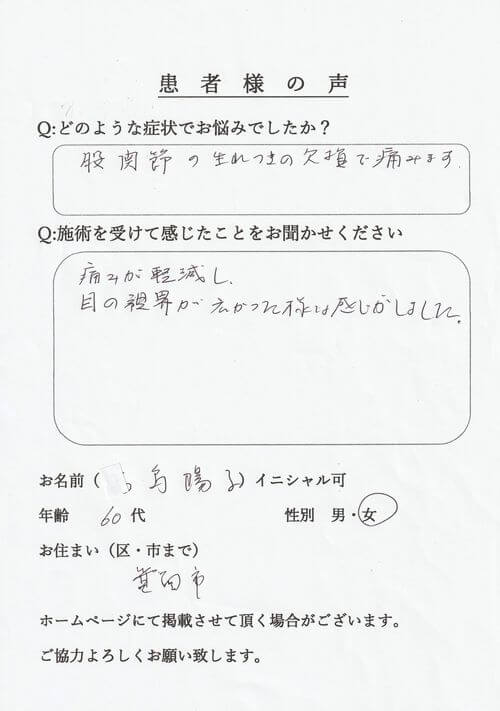 患者様の声
Q:どのような症状でお悩みでしたか？
股関節の生れつきの欠損で痛みます.
Q:施術を受けて感じたことをお聞かせください
痛みが軽減し、
目の視界が広がった様な感じがしました。
お名前（ 島陽子）イニシャル可
年齢 60代 性別 男・女
お住まい（区・市まで）
箕面市
ホームページにて掲載させて頂く場合がございます。
ご協力よろしくお願い致します。